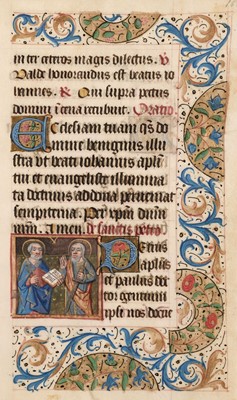 in ter ceteros magis dilectus. V
Valde honorandus est beatus io
hannes. R Qui supra pectus
domini in cena recubuit. Oratio.
Ecclesiam tuam qs do
mine benignus illu
stra ut beati iohannis apli
tui et evangeliste illumina
ta doctrinis ad dona perveniat
sempiterna. Per xpm dnm
nrm. Amen. de sanctis petro
Petrus
aplus
et paulus doc
tor gentium
ipse nos docue